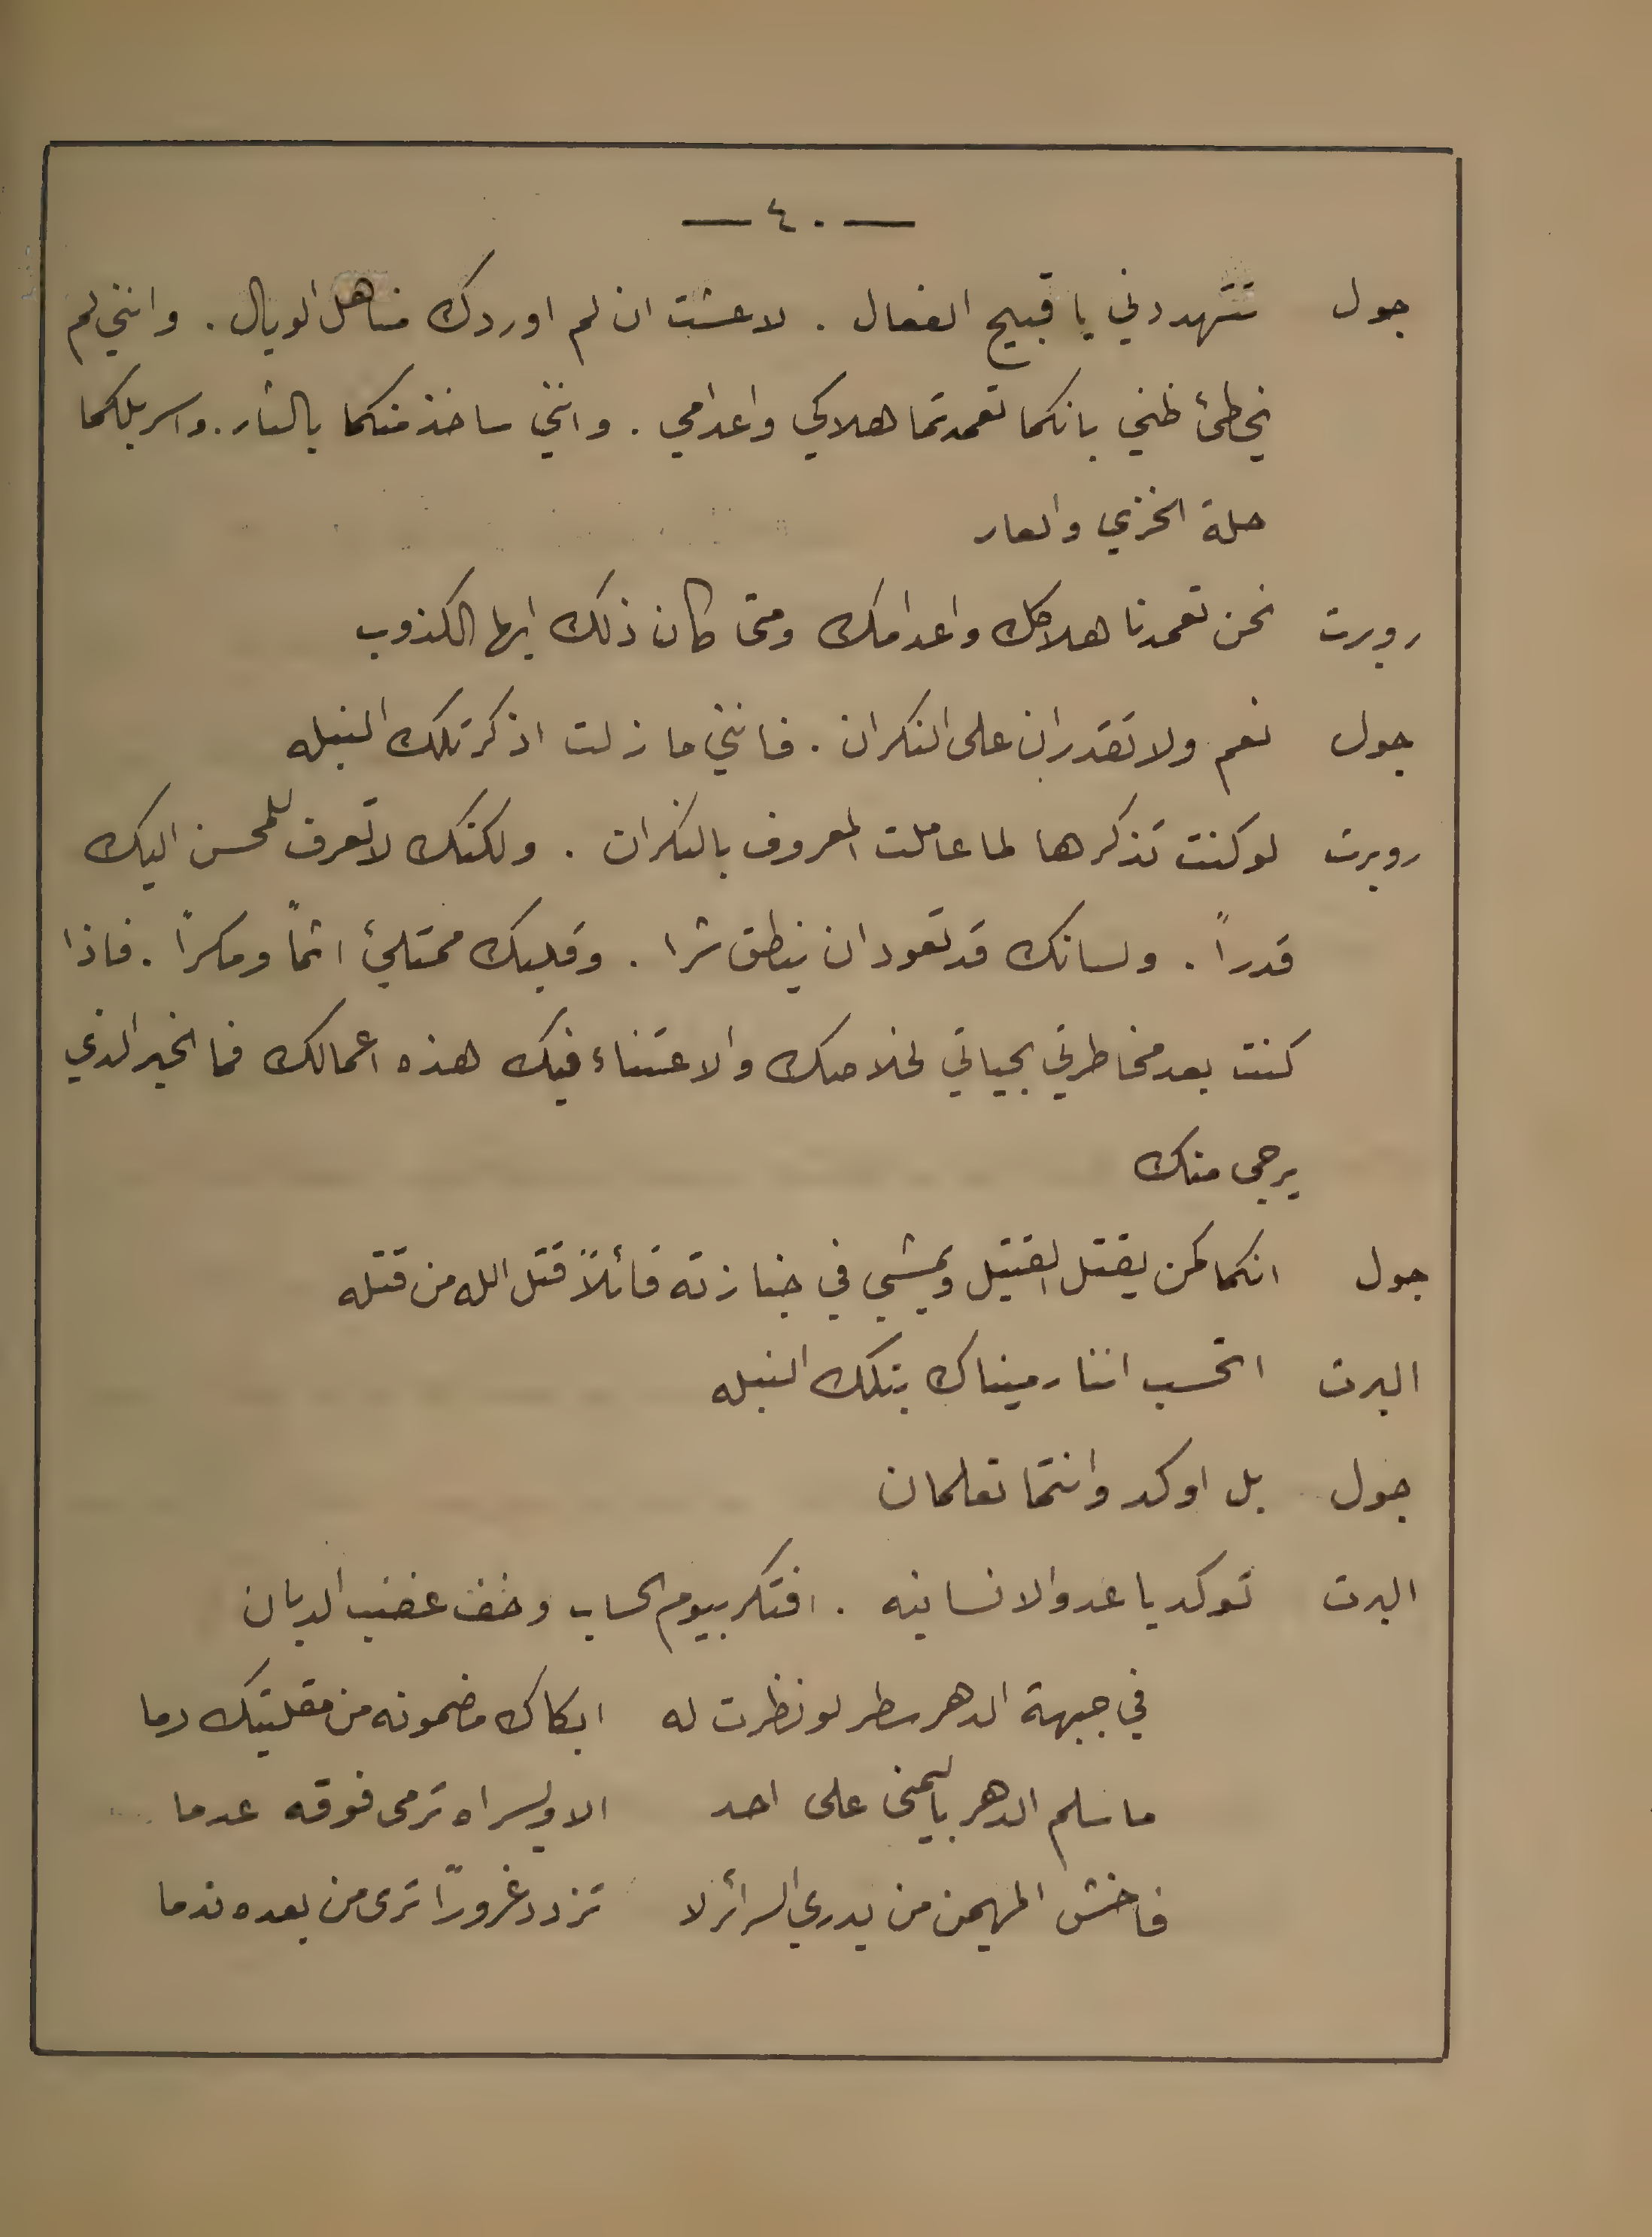 — ٤٠ —
جول تتهددني يا قبيح الفعال . لا عشت ان لم اوردك مناهل الوبال . وانني لم
يخطئ ظني بانكما تعمدتما هلاكي واعدامي . وانني ساخذ منكما بالثار . واسربلكما
حلة الخزي والعار
روبرت نحن تعمدنا هلاكك واعدامك ومتى كان ذلك ايها الكذوب
جول نعم ولا تقدران على النكران . فانني ما زلت اذكر تلك الليله
روبرت لو كنت تذكرها لما عاملت المعروف بالنكران . ولكنك لا تعرف للمحسن اليك
قدراً . ولسانك قد تعود ان ينطق شرا . وقلبك ممتلئ اثماً ومكراً . فاذا
كنت بعد مخاطرتي بحياتي لخلاصك والاعتناء فيك هذه اعمالك فما الخير الذي
يرجى منك
جول انكما كمن يقتل القتيل ويمشي في جنازته قائلاً قتل الله من قتله
البرت اتحسب اننا رميناك بتلك الليله
جول بل اوكد وانتما تعلمان
البرت توكد يا عدو الانسانيه . افتكر بيوم الحساب وخف غضب الديان
في جبهة الدهر سطر لو نظرت له ابكاك مضمونه من مقلتيك دما
ما سلم الدهر باليمنى على احد الا ويسراه ترمى فوقه عدما
فاخش المهيمن من يدري السرائر لا تزدد غروراً ترى من بعده ندما